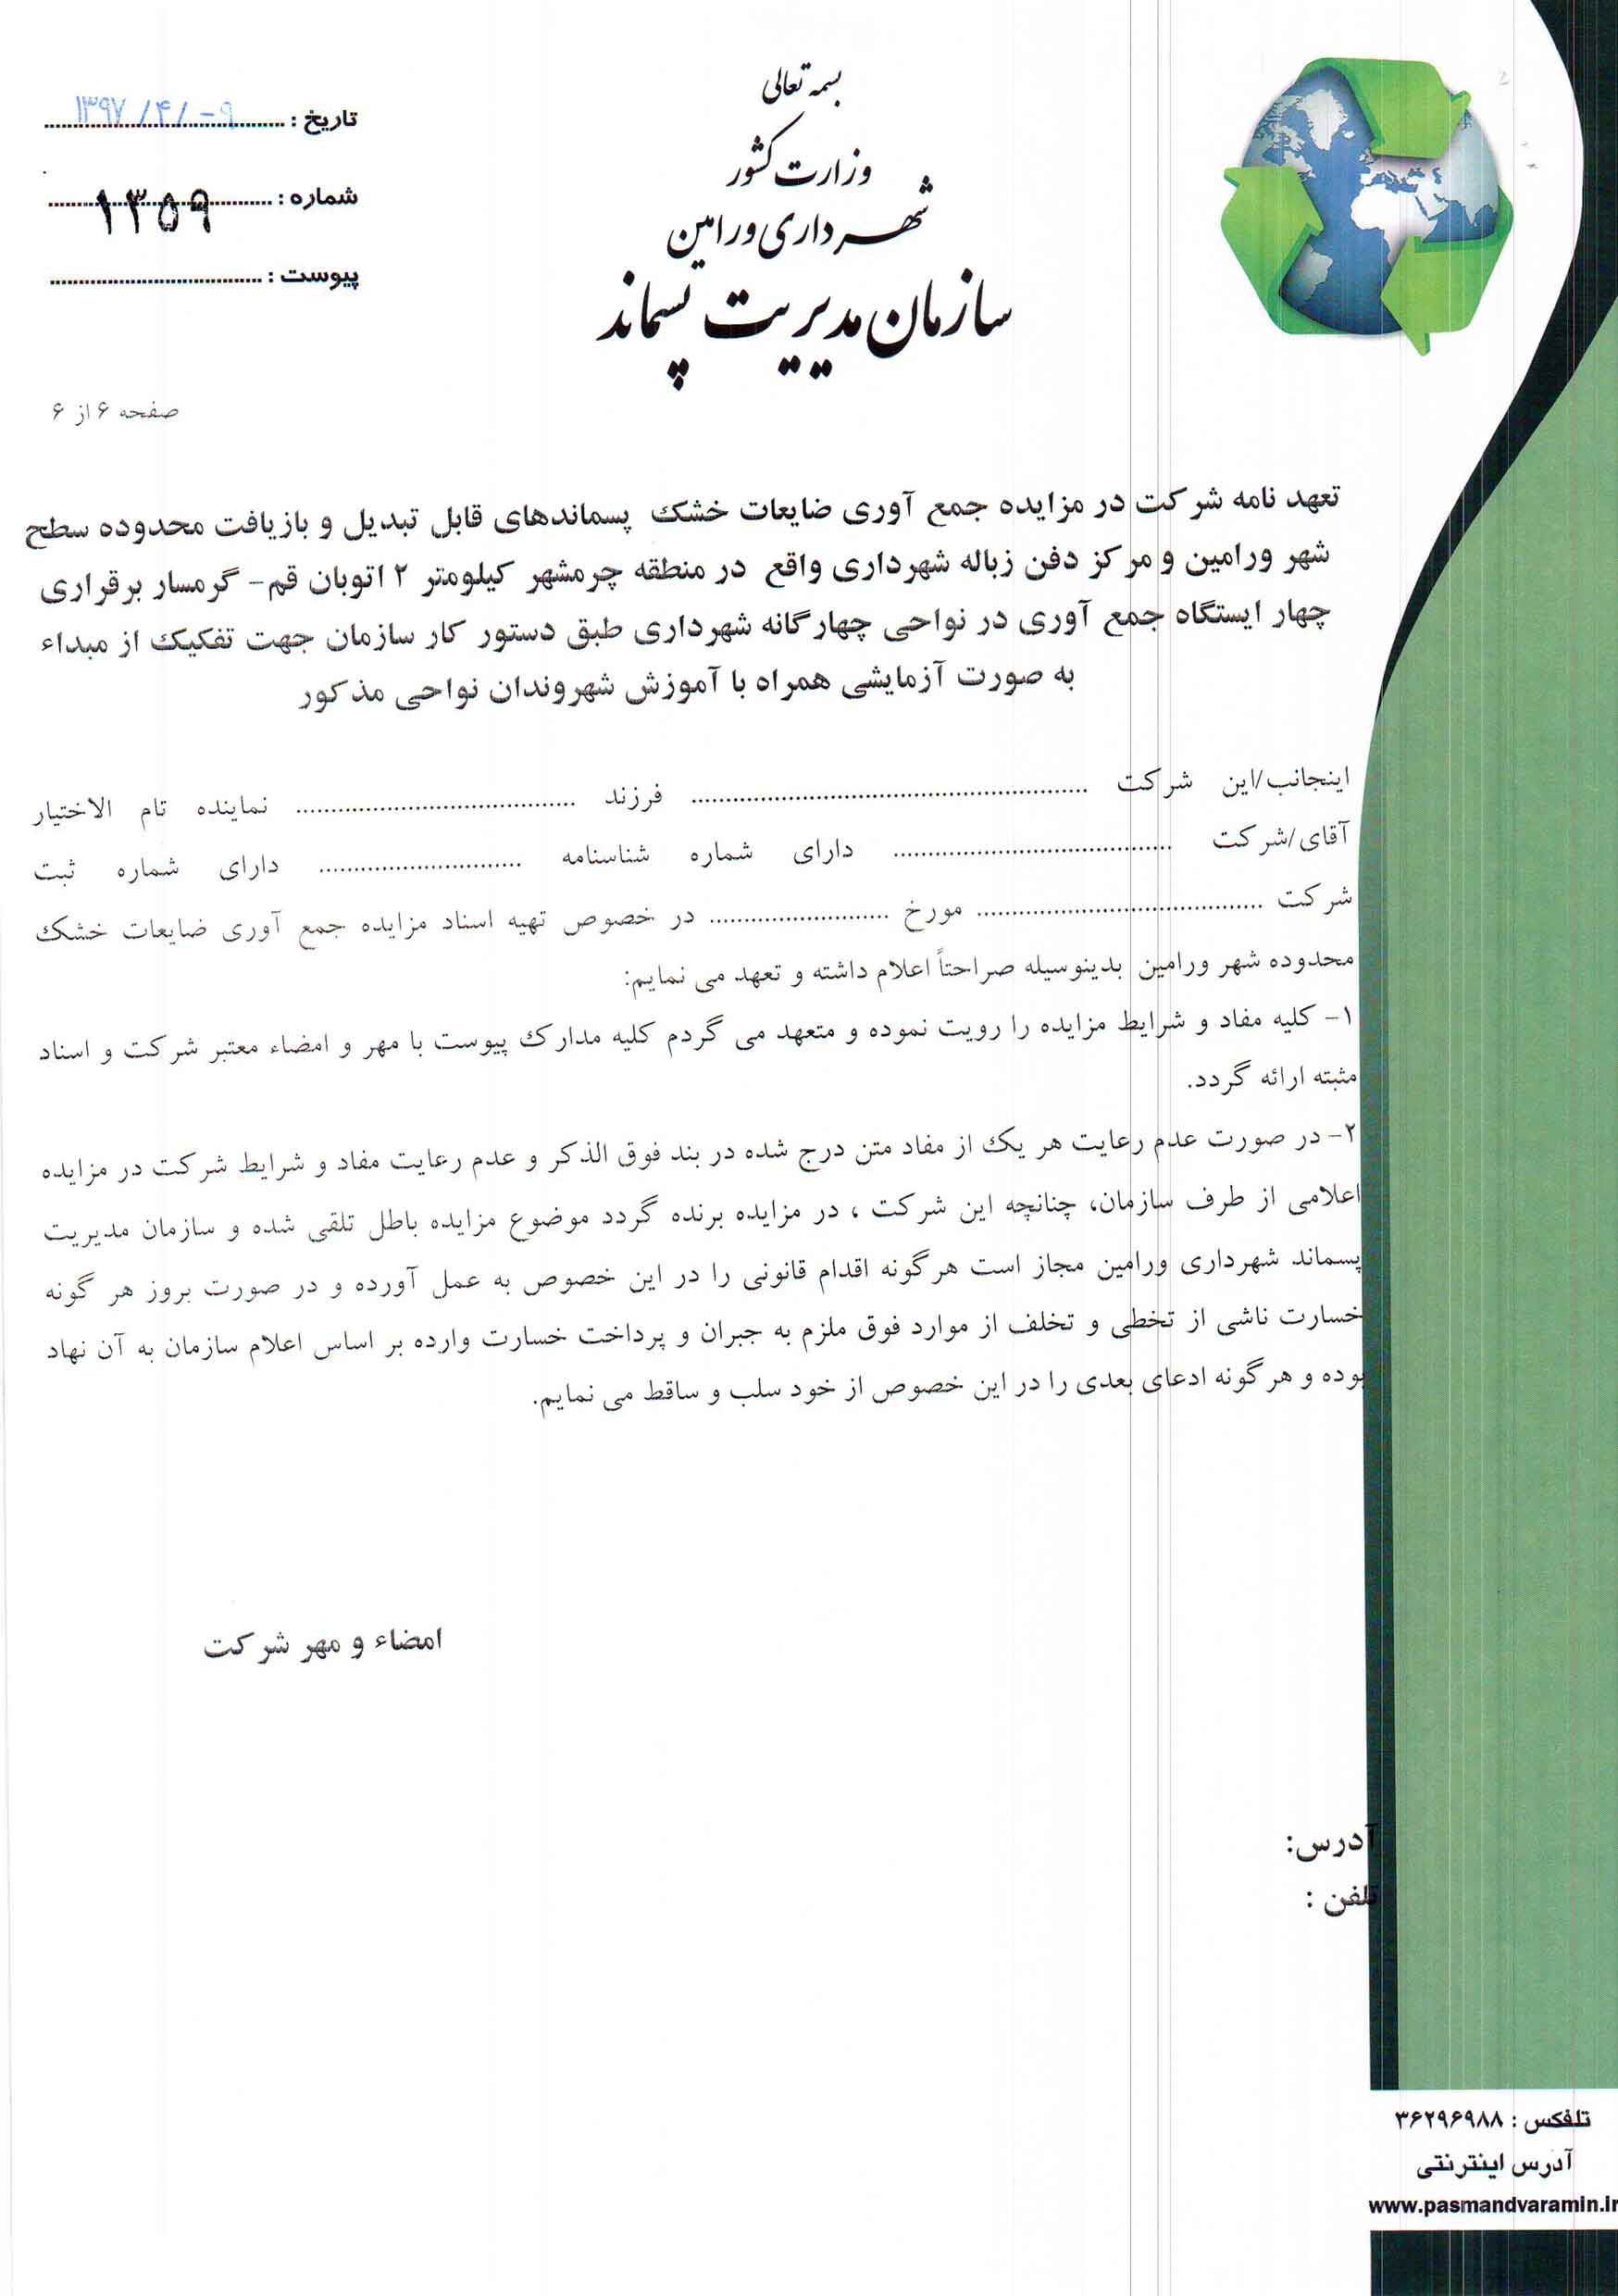 بسمه تعالی
وزارت کشور
شهرداری ورامین
سازمان مدیریت پسماند
تاریخ : ۱۳۹۷/۴/-۹
شماره : ۱۳۵۹
پیوست :
صفحه ۶ از ۶
تعهد نامه شرکت در مزایده جمع آوری ضایعات خشک پسماندهای قابل تبدیل و بازیافت محدوده سطح
شهر ورامین و مرکز دفن زباله شهرداری واقع در منطقه چرمشهر کیلومتر ۲ اتوبان قم- گرمسار برقراری
چهار ایستگاه جمع آوری در نواحی چهارگانه شهرداری طبق دستور کار سازمان جهت تفکیک از مبداء
به صورت آزمایشی همراه با آموزش شهروندان نواحی مذکور
اینجانب/این شرکت ........................ فرزند ........................ نماینده تام الاختیار
آقای/شرکت ........................ دارای شماره شناسنامه ........................ دارای شماره ثبت
شرکت ........................ مورخ ........................ در خصوص تهیه اسناد مزایده جمع آوری ضایعات خشک
محدوده شهر ورامین بدینوسیله صراحتاً اعلام داشته و تعهد می نمایم:
۱- کلیه مفاد و شرایط مزایده را رویت نموده و متعهد می گردم کلیه مدارک پیوست با مهر و امضاء معتبر شرکت و اسناد
مثبته ارائه گردد.
۲- در صورت عدم رعایت هر یک از مفاد متن درج شده در بند فوق الذکر و عدم رعایت مفاد و شرایط شرکت در مزایده
اعلامی از طرف سازمان، چنانچه این شرکت ، در مزایده برنده گردد موضوع مزایده باطل تلقی شده و سازمان مدیریت
پسماند شهرداری ورامین مجاز است هرگونه اقدام قانونی را در این خصوص به عمل آورده و در صورت بروز هر گونه
خسارت ناشی از تخطی و تخلف از موارد فوق ملزم به جبران و پرداخت خسارت وارده بر اساس اعلام سازمان به آن نهاد
بوده و هرگونه ادعای بعدی را در این خصوص از خود سلب و ساقط می نمایم.
امضاء و مهر شرکت
آدرس:
تلفن :
تلفکس : ۳۶۲۹۶۹۸۸
آدرس اینترنتی
www.pasmandvaramin.ir